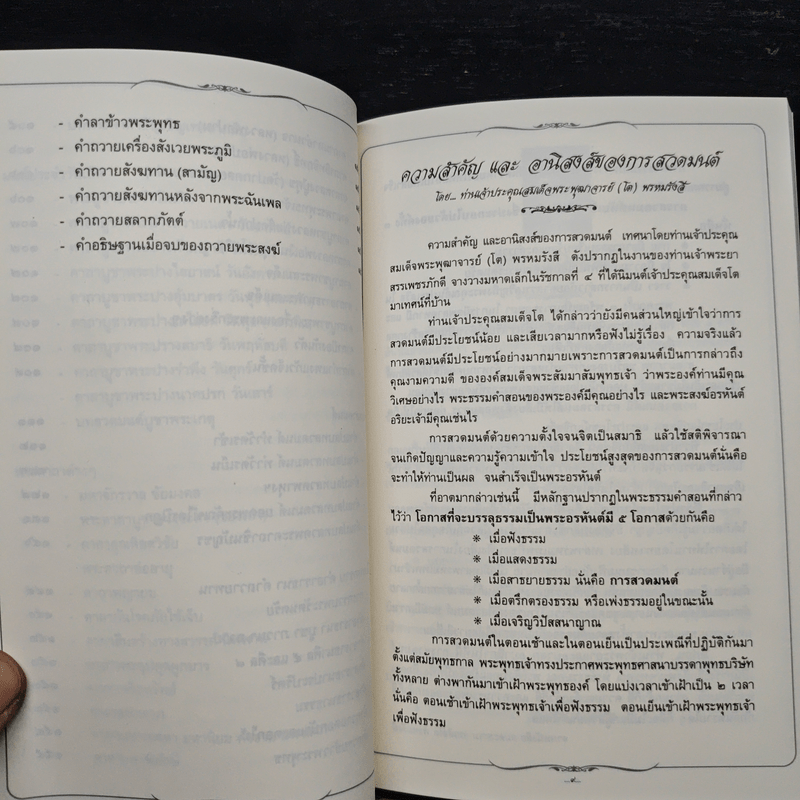 - คำลาข้าวพระพุทธ
- คำถวายเครื่องสังเวยพระภูมิ
- คำถวายสังฆทาน (สามัญ)
- คำถวายสังฆทานหลังจากพระฉันเพล
- คำถวายสลากภัตต์
- คำอธิษฐานเมื่อจบของถวายพระสงฆ์
ความสำคัญ และ อานิสงส์ของการสวดมนต์
โดย... ท่านเจ้าประคุณสมเด็จพระพุฒาจารย์ (โต) พรหมรังสี
ความสำคัญ และอานิสงส์ของการสวดมนต์ เทศนาโดยท่านเจ้าประคุณ
สมเด็จพระพุฒาจารย์ (โต) พรหมรังสี ดังปรากฏในงานของท่านเจ้าพระยา
สรรเพชรภักดี จางวางมหาดเล็กในรัชกาลที่ ๔ ที่ได้นิมนต์เจ้าประคุณสมเด็จโต
มาเทศน์ที่บ้าน
ท่านเจ้าประคุณสมเด็จโต ได้กล่าวว่ายังมีคนส่วนใหญ่เข้าใจว่าการ
สวดมนต์มีประโยชน์น้อย และเสียเวลามากหรือฟังไม่รู้เรื่อง ความจริงแล้ว
การสวดมนต์มีประโยชน์อย่างมากมายเพราะการสวดมนต์เป็นการกล่าวถึง
คุณงามความดี ขององค์สมเด็จพระสัมมาสัมพุทธเจ้า ว่าพระองค์ท่านมีคุณ
วิเศษอย่างไร พระธรรมคำสอนของพระองค์มีคุณอย่างไร และพระสงฆ์อรหันต์
อริยะเจ้ามีคุณเช่นไร
การสวดมนต์ด้วยความตั้งใจจนจิตเป็นสมาธิ แล้วใช้สติพิจารณา
จนเกิดปัญญาและความรู้ความเข้าใจ ประโยชน์สูงสุดของการสวดมนต์นั่นคือ
จะทำให้ท่านเป็นผล จนสำเร็จเป็นพระอรหันต์
ที่อาตมากล่าวเช่นนี้ มีหลักฐานปรากฏในพระธรรมคำสอนที่กล่าว
ไว้ว่า โอกาสที่จะบรรลุธรรมเป็นพระอรหันต์มี ๕ โอกาสด้วยกันคือ
❋ เมื่อฟังธรรม
❋ เมื่อแสดงธรรม
❋ เมื่อสาธยายธรรม นั่นคือ การสวดมนต์
❋ เมื่อตรึกตรองธรรม หรือเพ่งธรรมอยู่ในขณะนั้น
❋ เมื่อเจริญวิปัสสนาญาณ
การสวดมนต์ในตอนเช้าและในตอนเย็นเป็นประเพณีที่ปฏิบัติกันมา
ตั้งแต่สมัยพุทธกาล พระพุทธเจ้าทรงประกาศพระพุทธศาสนาบรรดาพุทธบริษัท
ทั้งหลาย ต่างพากันมาเข้าเฝ้าพระพุทธองค์ โดยแบ่งเวลาเข้าเฝ้าเป็น ๒ เวลา
นั่นคือ ตอนเช้าเข้าเฝ้าพระพุทธเจ้าเพื่อฟังธรรม ตอนเย็นเข้าเฝ้าพระพุทธเจ้า
เพื่อฟังธรรม